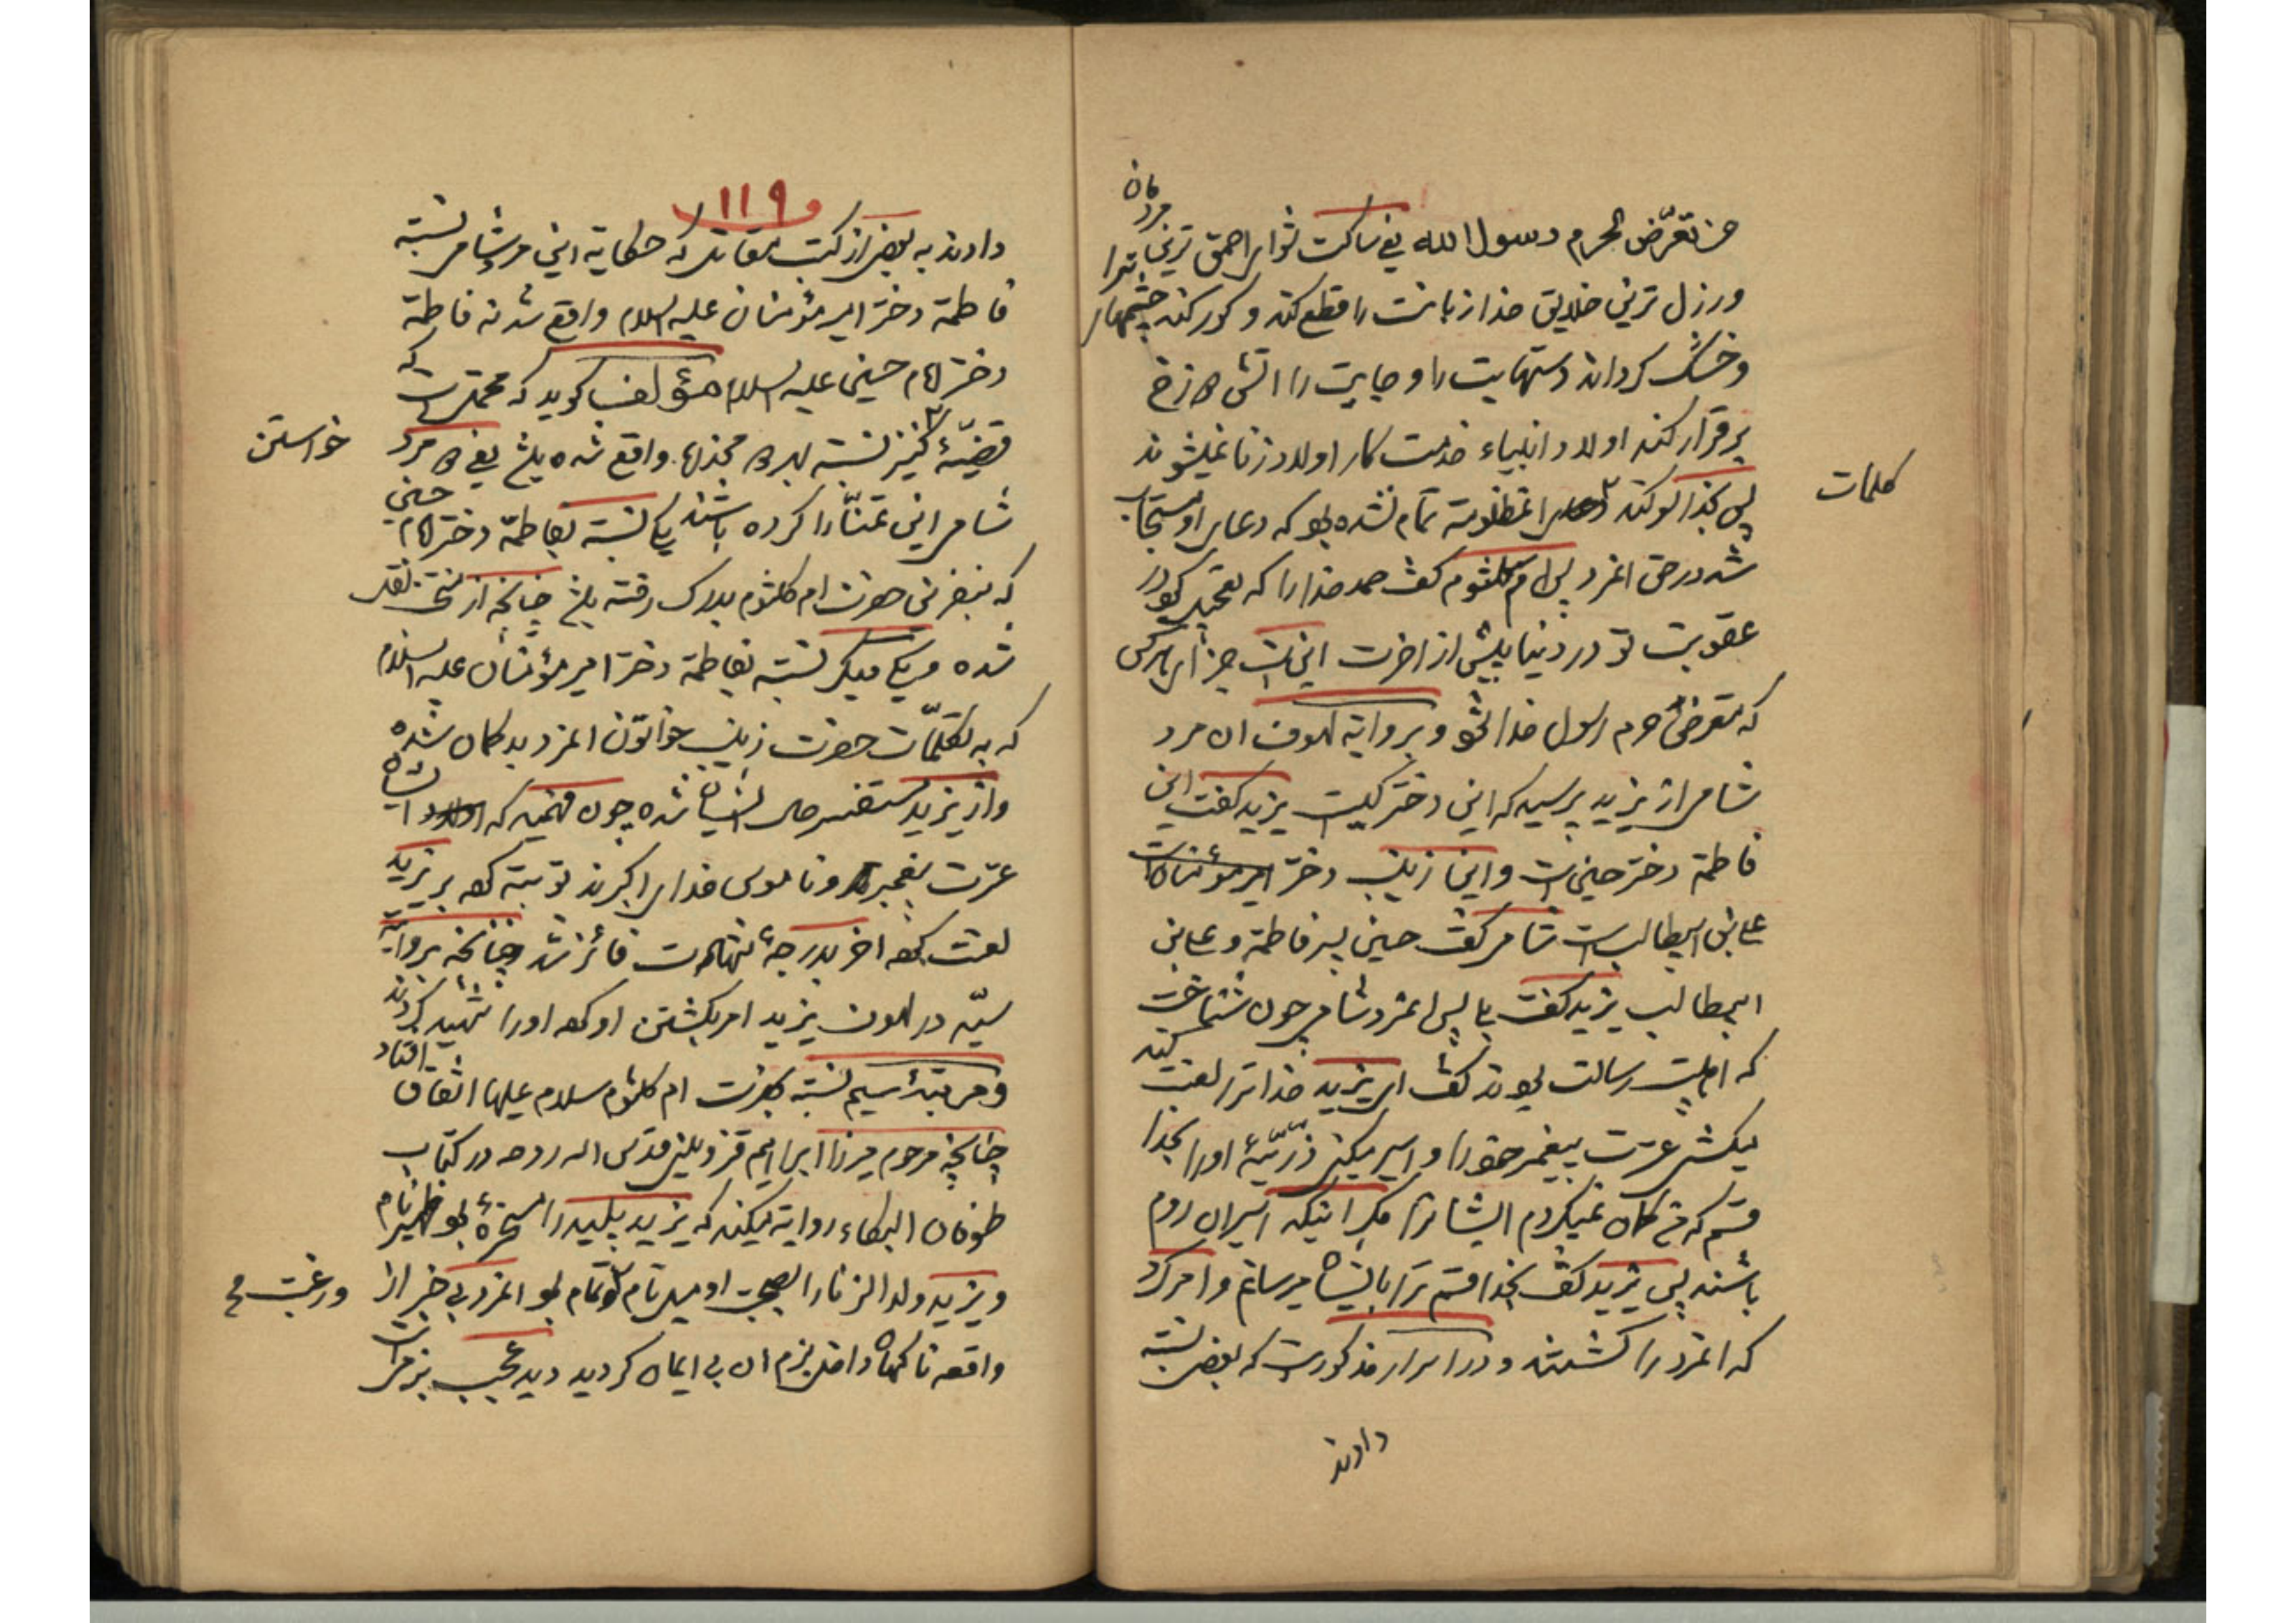 من تعرّض لحرم رسول الله یعنی ساکت شو ای احمق ترین مردمان
ورزل ترین خلایق خدا زبانت را قطع کند و کور کند چشمهای ترا
و خشک کرداند دستهایت را و جایت را اتش دوزخ
برقرار کند اولاد انبیاء خدمت کار اولاد زنا نمیشوند
پس بخدا سوکند کلمات انمظلومه تمام نشده بود که دعای او مستجاب
شد در حق انمرد پس ام کلثوم کفت حمد خدا را که تعجیل کرد در
عقوبت تو در دنیا پیش از اخرت این است جزای هر کس
که متعرض حرم رسول خدا شود و بروایة لهوف ان مرد
شامی از یزید پرسید که این دختر کیست یزید کفت این
فاطمة دختر حسین است و این زینب دختر امیر مؤمنان است
علی بن ابیطالب است شامی کفت حسین پسر فاطمة و علی بن
ابیطالب یزید کفت بلی پس انمرد شامی چون شناخت
که اهلبیت رسالت بودند کفت ای یزید خدا ترا لعنت کند
میکشی عترت پیغمبر خود را و اسیر میکنی ذرّیّۀ او را بخدا
قسم که من کمان نمیکردم ایشانرا مکر اینکه اسیران روم
باشند پس یزید کفت بخدا قسم ترا بایشان میرسانم و امر کرد
که انمرد را کشتند و در اسرار مذکور است که بعضی نسبة
دادند
کلمات
۱۱۹
دادند به بعضی از کتب مقاتل که حکایة این مرد شامی نسبة
فاطمة دختر امیر مؤمنان علیه السلام واقع شد نه فاطمة
دختر امام حسین علیه السلام مؤلف کوید که محتمل است که
قضیّۀ کنیز خواستن نسبة بهر دو مخذره واقع شده باشد یعنی دو مرد
شامی این تمنّا را کرده باشند یکی نسبة بفاطمة دختر امام حسین
که بنفرین حضرت ام کلثوم بدرک رفته باشد چنانچه از منتخب نقل
شده و یکی دیکر نسبة بفاطمة دختر امیر مؤمنان علیه السلام
که به تکلّمات حضرت زینب خواتون انمرد بد کمان شده
و از یزید مستفسر حال ایشان شده چون فهمید که ایشان
عترت پیغمبر و ناموس خدای اکبرند توبته کرد بر یزید
لعنت کرد اخر بدرجۀ شهادت فائز شد چنانچه بروایة
سیّد در لهوف یزید امر بکشتن او کرد او را شهید کردند
و مرتبۀ سیم نسبة بحضرت ام کلثوم سلام علیها اتفاق افتاد
چنانچه مرحوم میرزا ابراهیم قزوینی قدس الله روحه در کتاب
طوفان البکاء روایة میکند که یزید پلید را مسخرۀ بود ظهیر نام
و یزید ولد الزنا را بصحبت او میل تمام و رغبت تمام بود انمرد بی خبر از
واقعه ناکهان داخل بزم ان بی ایمان کردید دید عجب بزمی است
خواستن
و رغبت